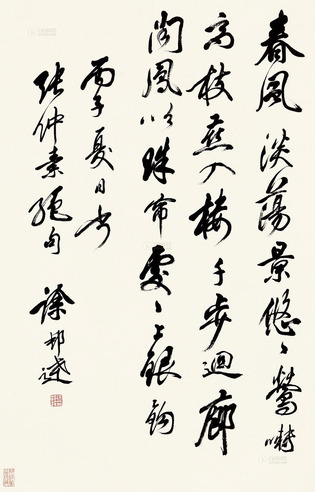 春風淡蕩景悠〻鶯囀
高枝燕入樓千步迴廊
聞鳳吹珠帘處〻上銀鈎
丙子夏日書
張仲素絕句 徐邦達